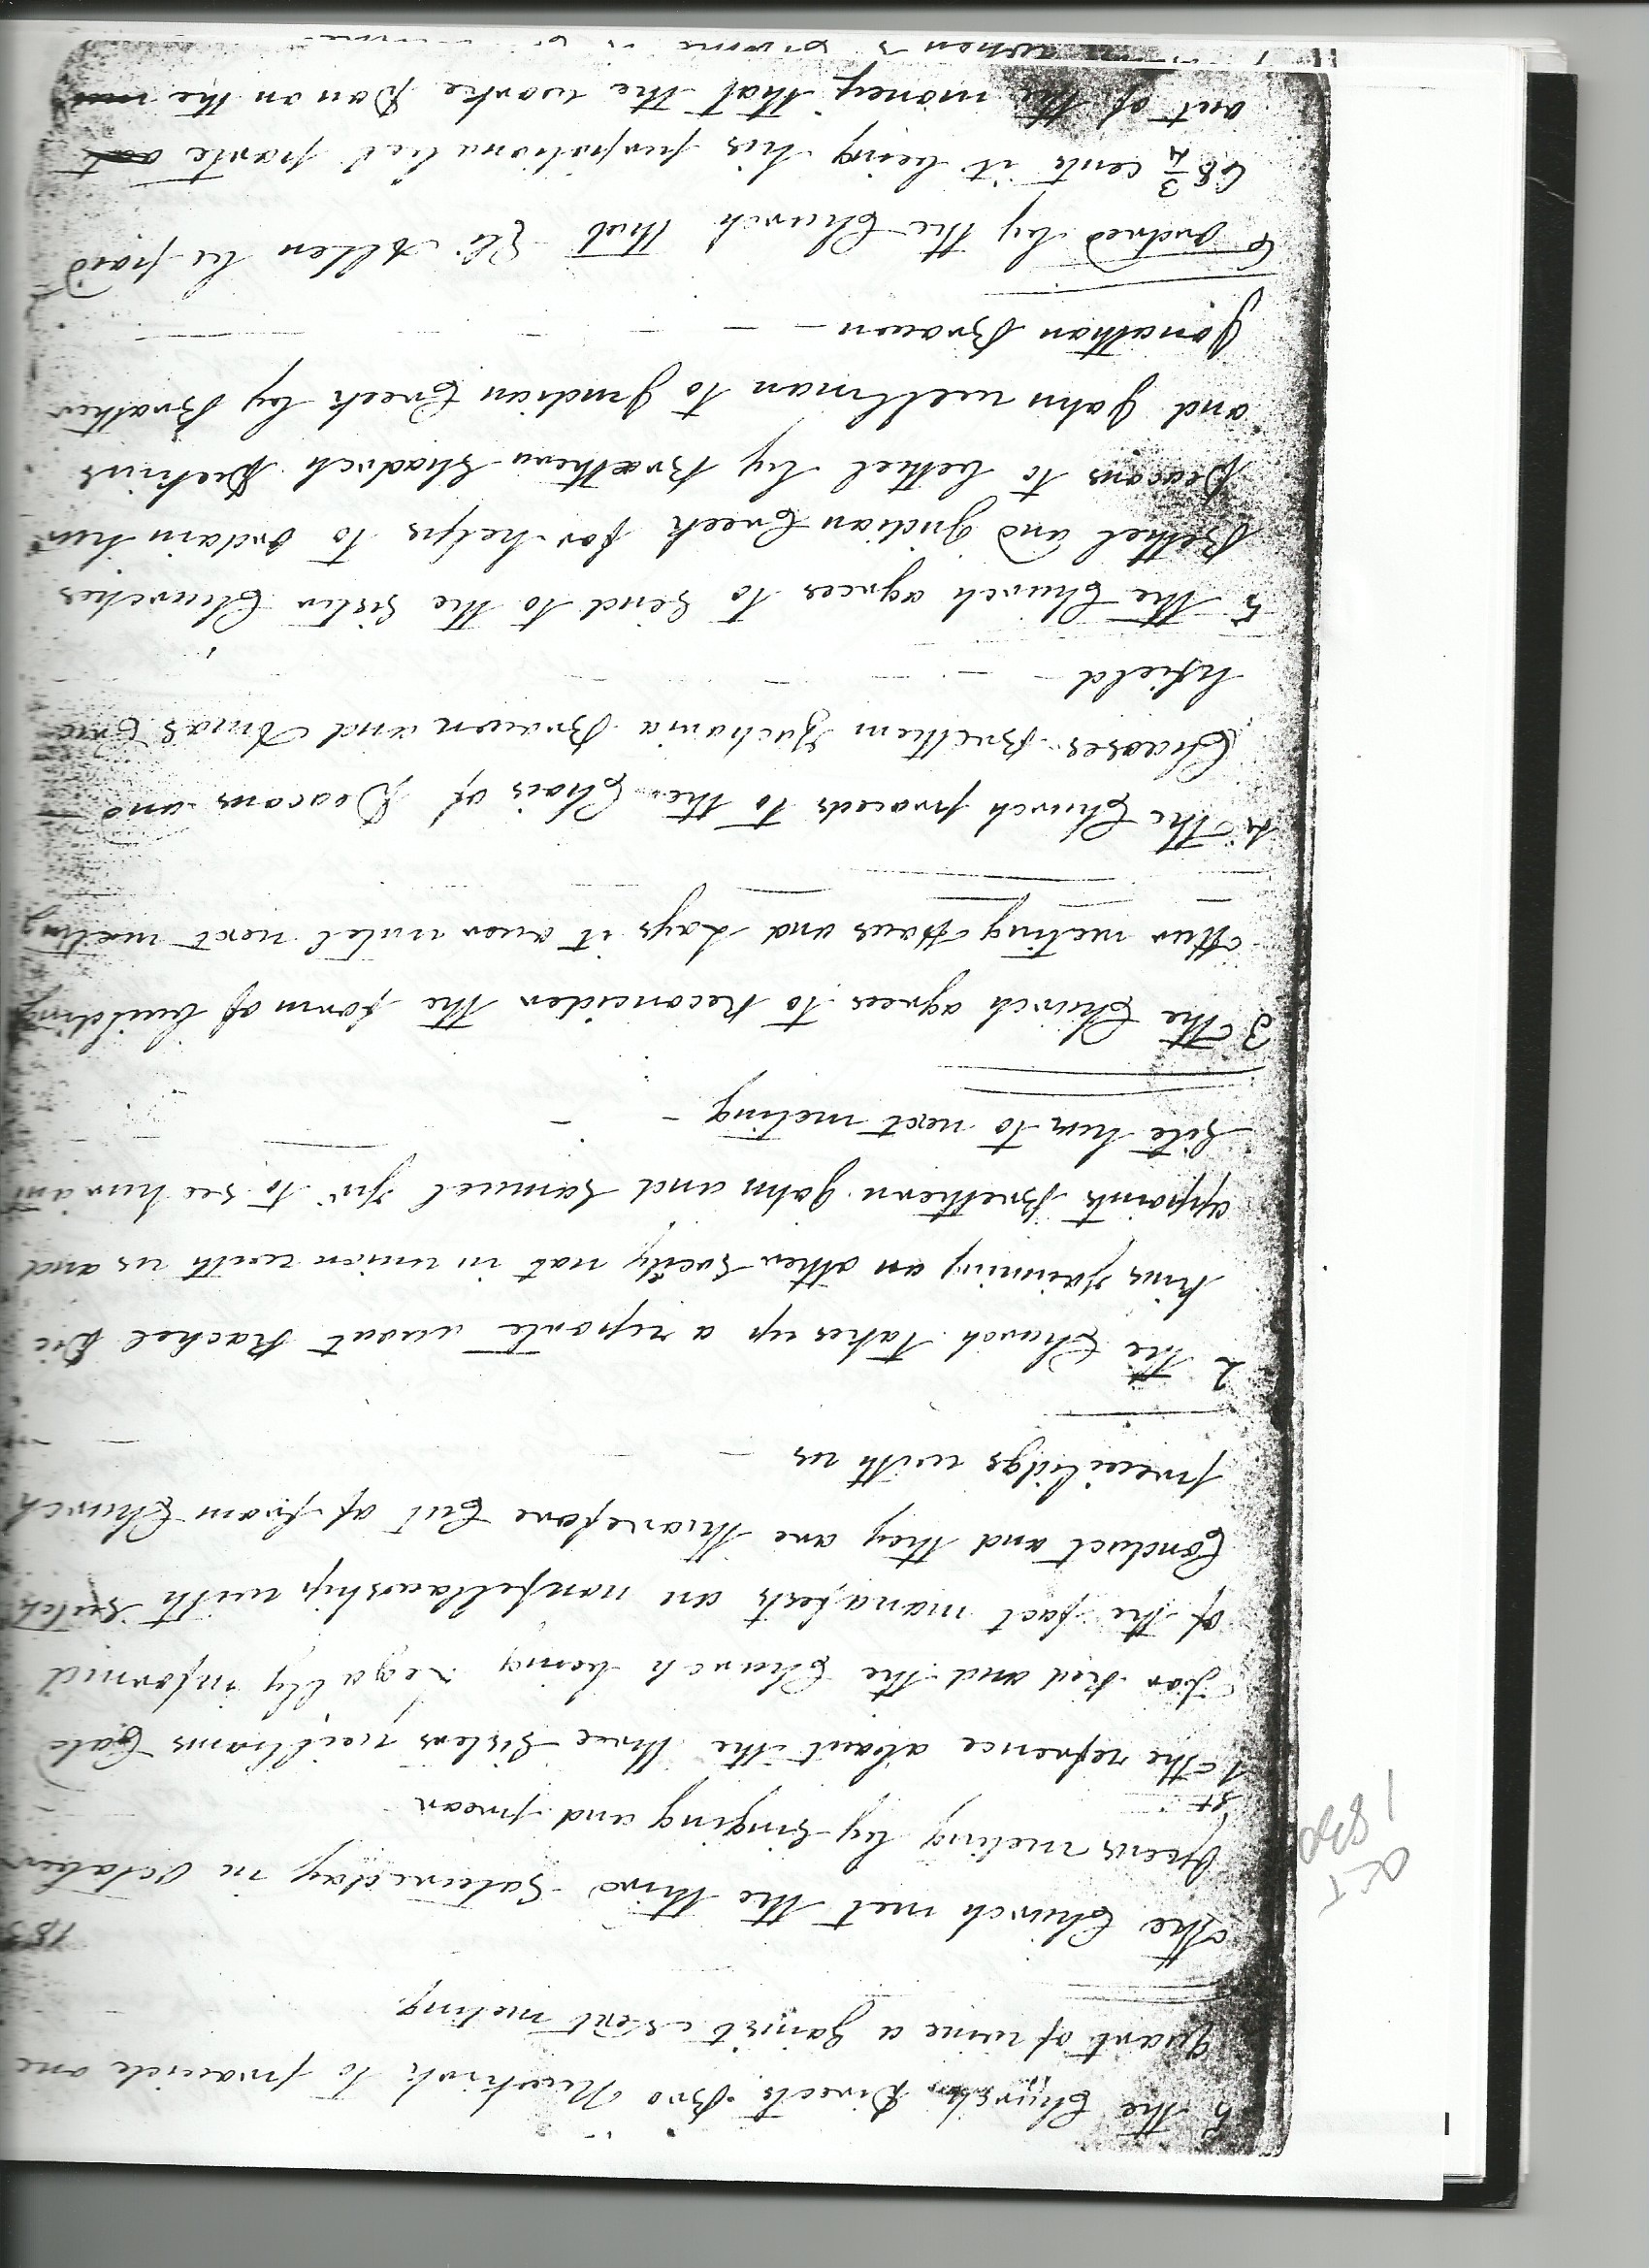 5 the Church Directs Bro Newkirk to provide one
Quart of wine a Ganst next meting
183
The Church met the third Saturday in October
Opens meting by Singing and prear
OCT
1830
1st The refrence about the three Sisters Williams Cald
for Red and the Church being Legally informd
of the fact manafests an nonfellawship with Sutch
Conduct and they are tharefore Cut of from Church
previlidgs with us
2 the Church takes up a reporte about Rachel Dic
kins Joining an other Socity not in union with us and
appoints Brethern John and Samuel to see hur and
Site hur to next meting
3 The Church agrees to Reconcider the form of building
Our meting Haus and Lays it over untel next meting
4 The Church proceds to the Chois of Deacons and
Chooses Brethern Zachariа Brawn and Amas Cru
hfield
5 the Church agrees to Send to the Sister Churches
Bethel and Indian Creek for helps to Ordain hur
Deacons to bethel by Brothern Shadrch Dickins
and John wellman to Indian Creek by Brother
Jonathan Brawn
6 Ordred by the Church that Eli Allen be paid
68 3/4 cents it being his purpotionabel parte
out of the money that the worke Don on the